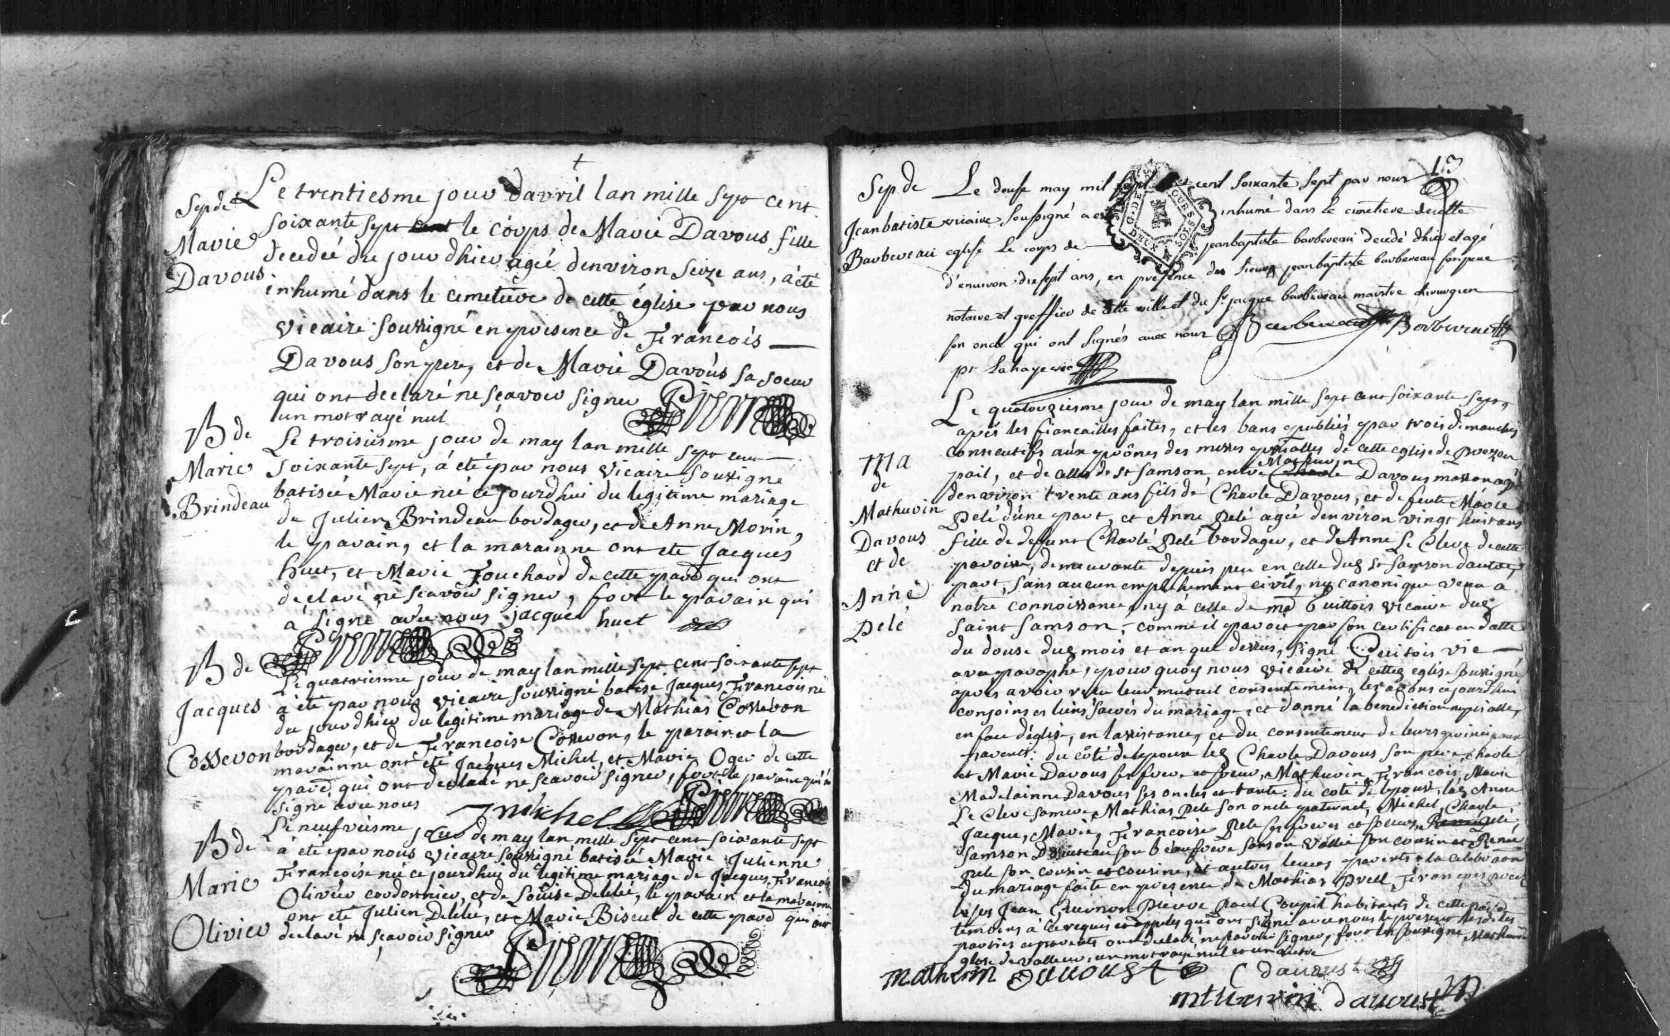 Sep de
Marie
Davous
Le trentiesme jour davril lan mille sept cent
soixante sept cent le corps de Marie Davous fille
decedée du jour dhier agée denviron seize ans, a été
inhumé dans le cemetiere de cette église par nous
vicaire soussigné en presence de Francois
Davous son pere, et de Marie Davous sa soeur
qui ont declaré ne scavoir signer
un mot rayé nul
B de
Marie
Brindeau
Le troisiesme jour de may lan mille sept cent
soixante sept, a été par nous vicaire soussigné
batisée Marie née ce jourdhui du legitime mariage
de Julien Brindeau bordager, et de Anne Morin,
le parain, et la marainne ont ete Jacques
huet, et Marie Fouchard de cette pard qui ont
declaré ne scavoir signer, fors le parain qui
a signé avec nous jacques huet
B de
Jacques
Cosseron
Le quatriesme jour de may lan mille sept cent soixante sept
a ete par nous vicaire soussigné batisé Jacques Francois né
du jourdhier du legitime mariage de Mathias Cosseron
bordager, et de Francoise Cosseron, le parain et la
marainne ont été Jacques Michel, et Marie Oger de cette
pard, qui ont declaré ne scavoir signer, fors le parain qui a
signé avec nous
J michel
B de
Marie
Olivier
Le neufviesme jour de may lan mille sept cent soixante sept
a ete par nous vicaire soussigné batisée Marie Julienne
Francoise née ce jourdhuy du legitime mariage de Jacques Francois
Olivier cordonnier, et de Louise Delélé, le parain et la marainne
ont eté Julien Delélé, et Marie Biseul de cette pard qui ont
declaré ne scavoir signer
13
Sep de
Jean batiste
Barbereau
Le douse may mil sept cent soixante sept par nous
vicaire soussigné a eté inhumé dans le cimetiere de cette
eglise le corps de jean baptiste barbereau decedé d'hier et agé
d'environ dix sept ans, en presence des sieurs jean baptiste barbereau son pere
notaire et greffier de cette ville et du sr jacque barbereau maistre chirurgien
son oncle qui ont signés avec nous Barbereau Barbereau
G. DE
DEUX
SOLS
Ma
de
Mathurin
Davous
et de
Anne
Pelé
Le quatorziesme jour de may lan mille sept cent soixante sept,
apres les fiancailles faites, et les bans publiés par trois dimanches
consecutifs aux prônes des messes de cette eglise de
pail, et de celle de st Samson entre Mathurin Davous masson agé
denviron trente ans fils de Charle Davous, et de feue Marie
Pelé d'une part, et Anne Pelé agée denviron vingt huit ans
fille de defunt Charle Pelé bordager, et de Anne Le Cleve de cette
paroisse, demeurante depuis peu en celle dud st Samson dautre
part, sans aucun empechement civil, ny canonique venu a
notre connoissance, ny à celle de me Guittois vicaire dud
saint Samson, comme il paroit par son certificat en datte
du douse dud mois et an que dessus, signé Guitois vic
avec paraphe, pourquoy nous vicaire de cette eglise soussigné
apres avoir receu leur mutuel consentement, les avons ce jourdhui
conjoins es liens sacrés du mariage, et donné la benediction nuptialle,
en face d'eglise, en lassistance, et du consentement de leurs
parents: du côté de lepoux led Charle Davous son pere, Charle
et Marie Davous ses frere et soeur, Mathurin, Francois, Marie
Madelainne Davous ses oncles et tante: du coté de lepouse, lad Anne
Le Cleve sa mere, Mathias Pele son oncle paternel, Michel, Charle,
Jacque, Marie, Francoise Pele ses freres et soeurs
Samson son beau frere Samson Vallée son cousin et Renée
Pele son cousin et cousine, et autres leurs parents: la celebration
du mariage faite en presence de Mathias Francois
Jean Guernon Pierre Paul Coupil habitants de cette pard
temoins à ce requis et appelés qui ont signé avec nous le present
parties et parents ont declaré ne scavoir signer, fors les soussignés Mathurin
un mot rayé nul
mathurin dauoust C dauoust
mathurin dauoust